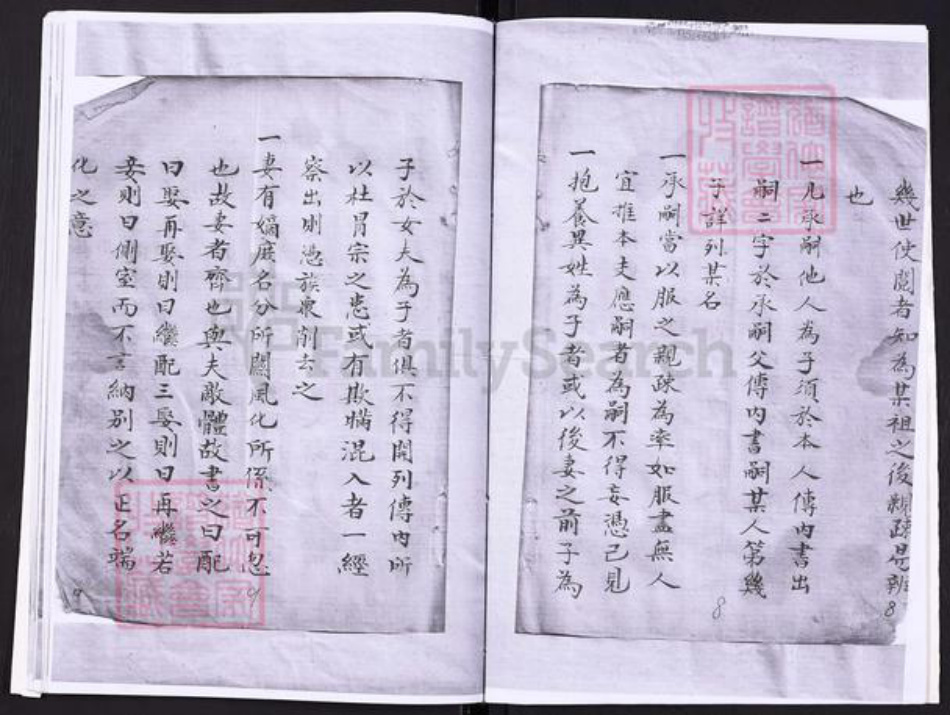 幾世使閱者知為某祖之後親疎易辨
也
一凡承嗣他人為子須於本人傳內書出
嗣二字於承嗣父傳內書嗣某人第幾
子詳列某名
一承嗣當以服之親疎為率如服盡無人
宜推本支應嗣者為嗣不得妄憑己見
一抱養異姓為子者或以後妻之前子為
8
8
子於女夫為子者俱不得開列傳內所
以杜冒宗之患或有欺瞞混入者一經
察出則憑族衆削去之
一妻有嫡庶名分所關風化所係不可忽
也故妻者齊也與夫敵體故書之曰配
曰娶再娶則曰繼配三娶則曰再繼若
妾則曰側室而不言納別之以正名端
化之意
9
9
FamilySearch